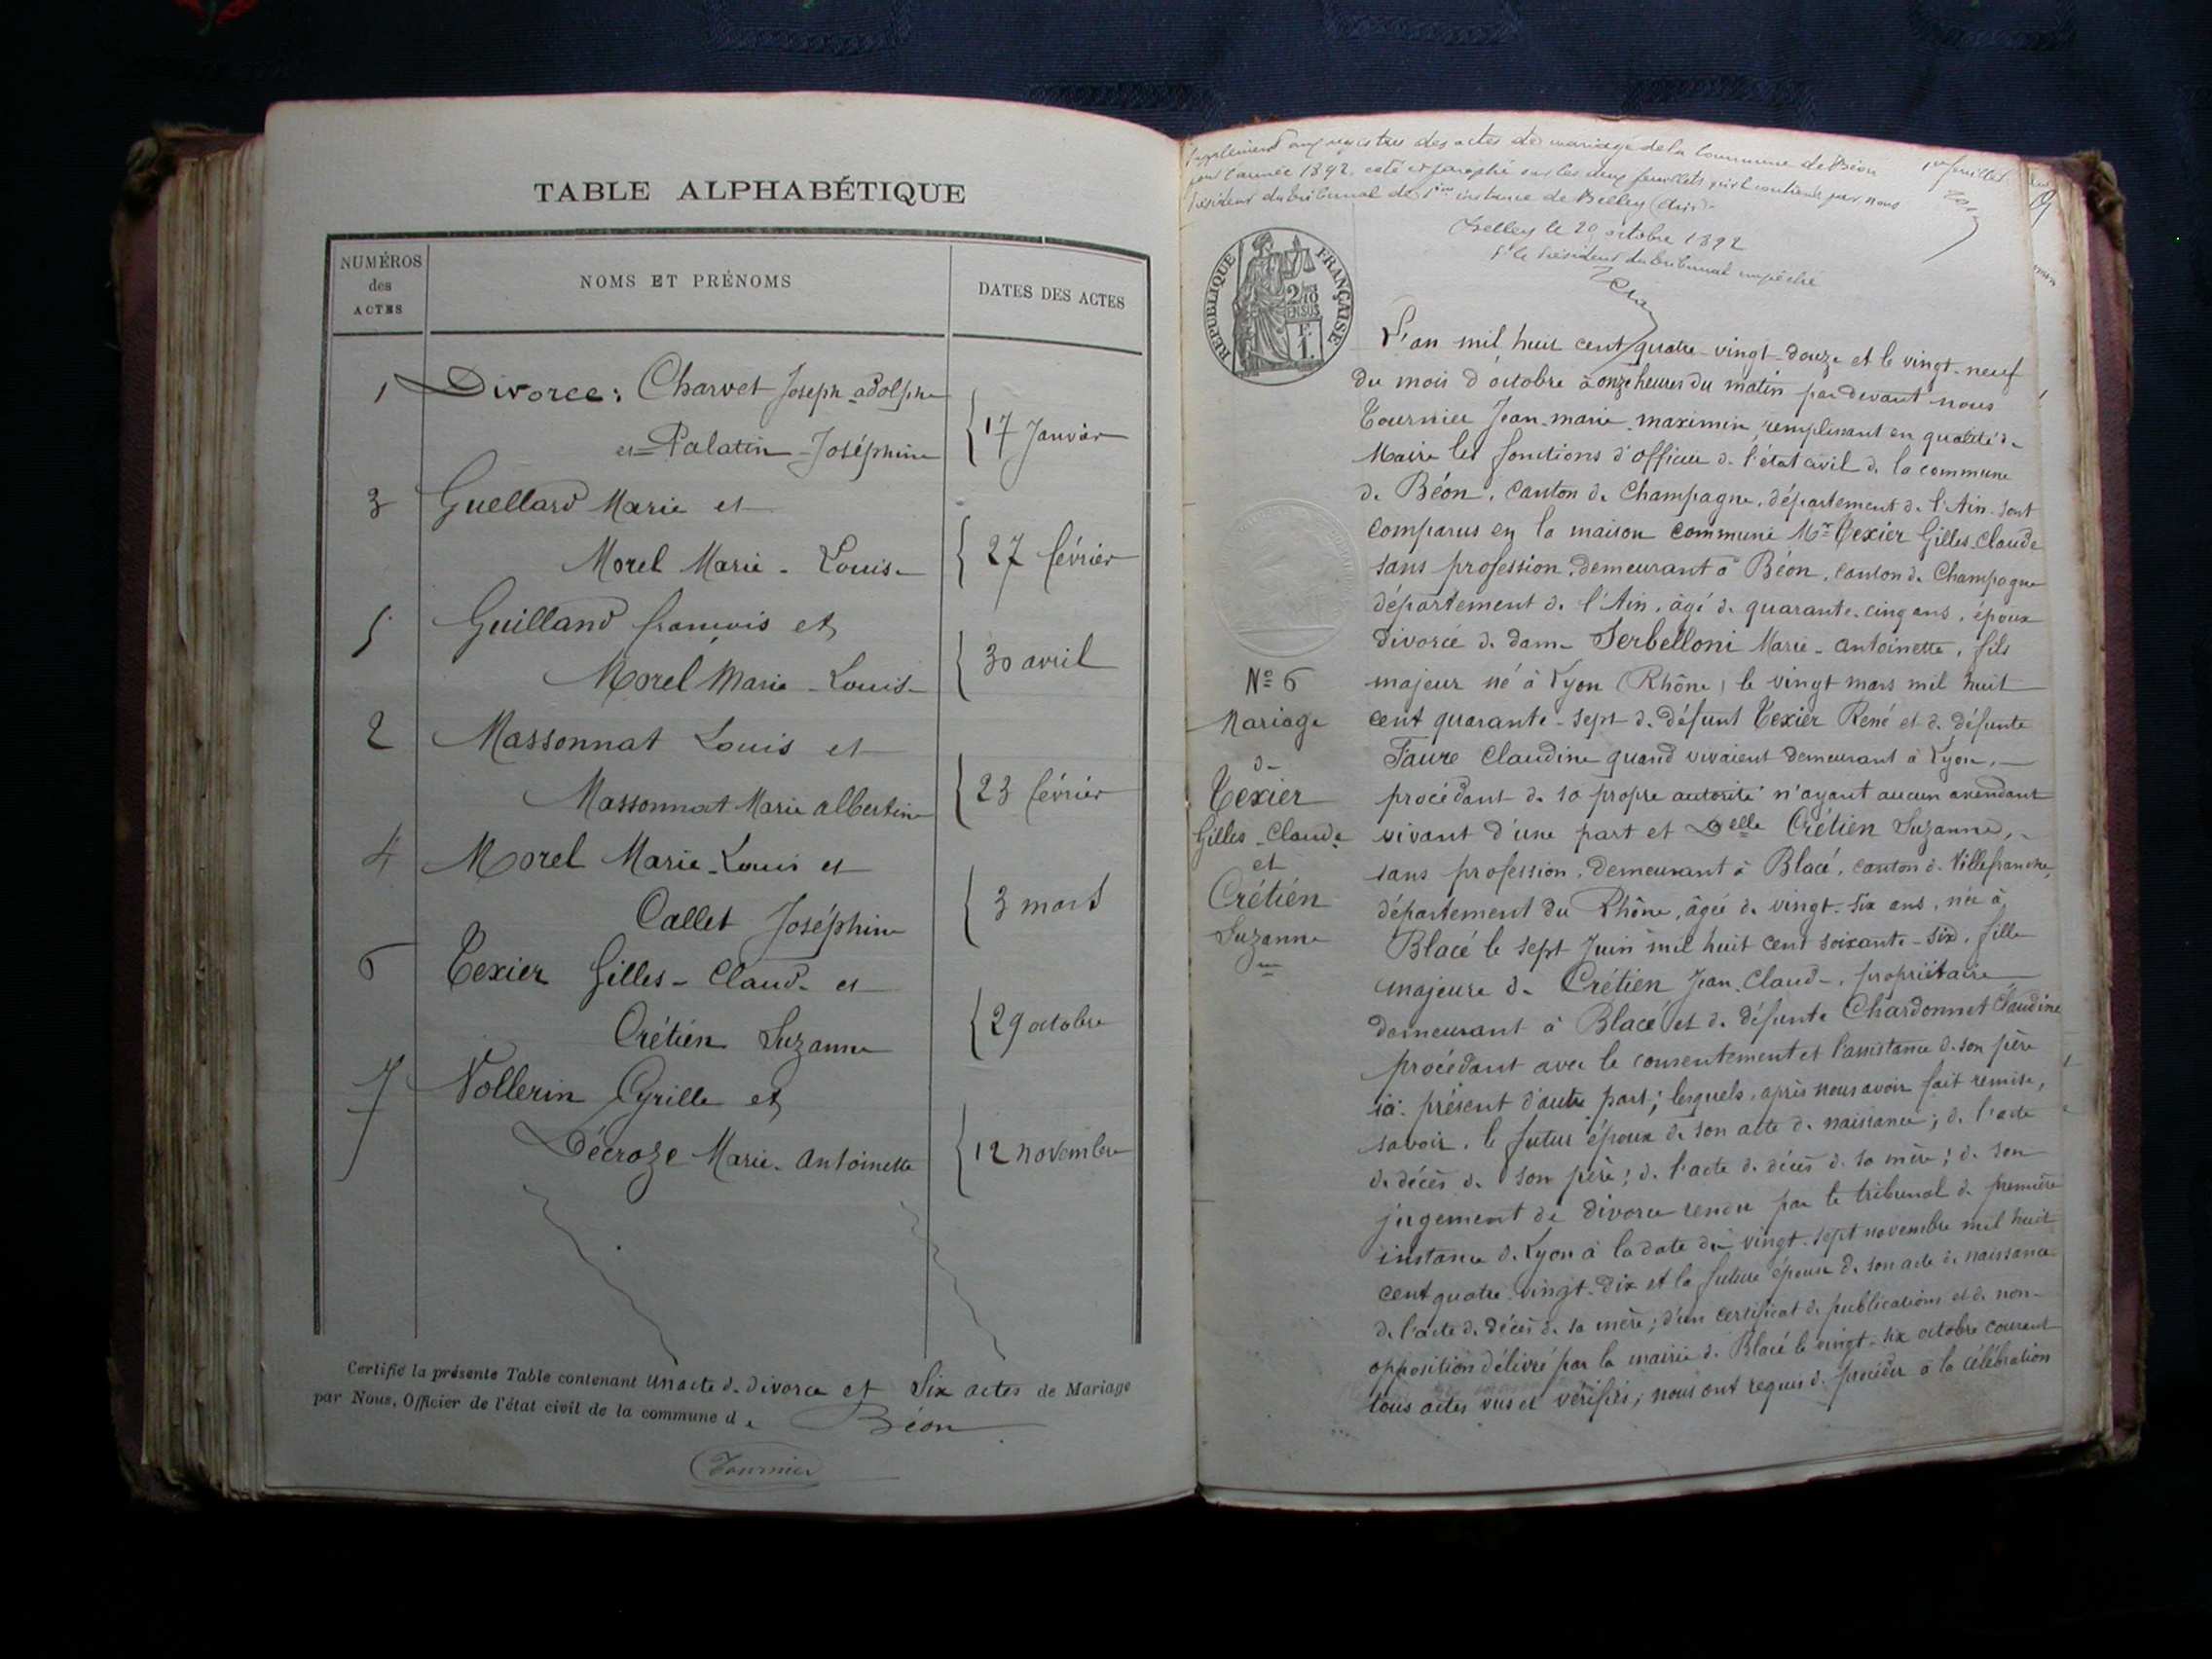 TABLE ALPHABÉTIQUE
NUMÉROS
des
ACTES
NOMS ET PRÉNOMS
DATES DES ACTES
1 Divorce : Charvet Joseph adolphe
et Palatin Joséphine
17 Janvier
3 Guelland Marie et
Morel Marie - Louise
27 février
5 Guilland françois et
Morel Marie - Louise
30 avril
2 Massonnat Louis et
Massonnat Marie albertine
23 février
4 Morel Marie - Louis et
Callet Joséphine
3 mars
6 Texier Gilles - Claude et
Crétien Suzanne
29 octobre
7 Vollerin Cyrille et
Décroze Marie - Antoinette
12 novembre
Certifié la présente Table contenant un acte de divorce et Six actes de Mariage
par Nous, Officier de l'état civil de la commune de Béon
Tournier
Supplément aux registres des actes de mariage de la Commune de Béon
pour l'année 1892, coté et paraphé sur les deux feuillets qu'il contient par nous
Président du tribunal de 1ère instance de Belley (Ain)
1er feuillet
Belley le 29 octobre 1892
Pr le Président du tribunal empêché
RÉPUBLIQUE FRANÇAISE
2/10
EN SUS
F.
1.
L'an mil huit cent quatre - vingt - douze et le vingt - neuf
du mois d'octobre à onze heures du matin par devant nous
Tournier Jean - marie - maximin, remplissant en qualité de
Maire les fonctions d'officier de l'état civil de la commune
de Béon, canton de Champagne, département de l'Ain - sont
comparus en la maison commune Mr Texier Gilles - Claude
sans profession, demeurant à Béon, canton de Champagne
département de l'Ain, âgé de quarante - cinq ans, époux
divorcé de dame Serbelloni Marie - antoinette, fils
majeur né à Lyon (Rhône) le vingt mars mil huit
cent quarante - sept de défunt Texier René et de défunte
Faure Claudine quand vivaient demeurant à Lyon, -
procédant de sa propre autorité n'ayant aucun ascendant
vivant d'une part et Delle Crétien Suzanne,
sans profession, demeurant à Blacé, canton de Villefranche,
département du Rhône, âgée de vingt - six ans, née à
Blacé le sept Juin mil huit cent soixante - six, fille
majeure de Crétien Jean - Claude, propriétaire
demeurant à Blacé et de défunte Chardonnet Claudine
procédant avec le consentement et l'assistance de son père
ici présent d'autre part ; lesquels, après nous avoir fait remise,
savoir, le futur époux de son acte de naissance ; de l'acte
de décès de son père ; de l'acte de décès de sa mère ; de son
jugement de divorce rendu par le tribunal de première
instance de Lyon à la date du vingt - sept novembre mil huit
cent quatre - vingt - dix et la future épouse de son acte de naissance
de l'acte de décès de sa mère ; d'un certificat de publications et de non -
opposition délivré par la mairie de Blacé le vingt - six octobre courant
tous actes vus et vérifiés ; nous ont requis de procéder à la célébration
No 6
Mariage
de
Texier
Gilles - Claude
et
Crétien
Suzanne